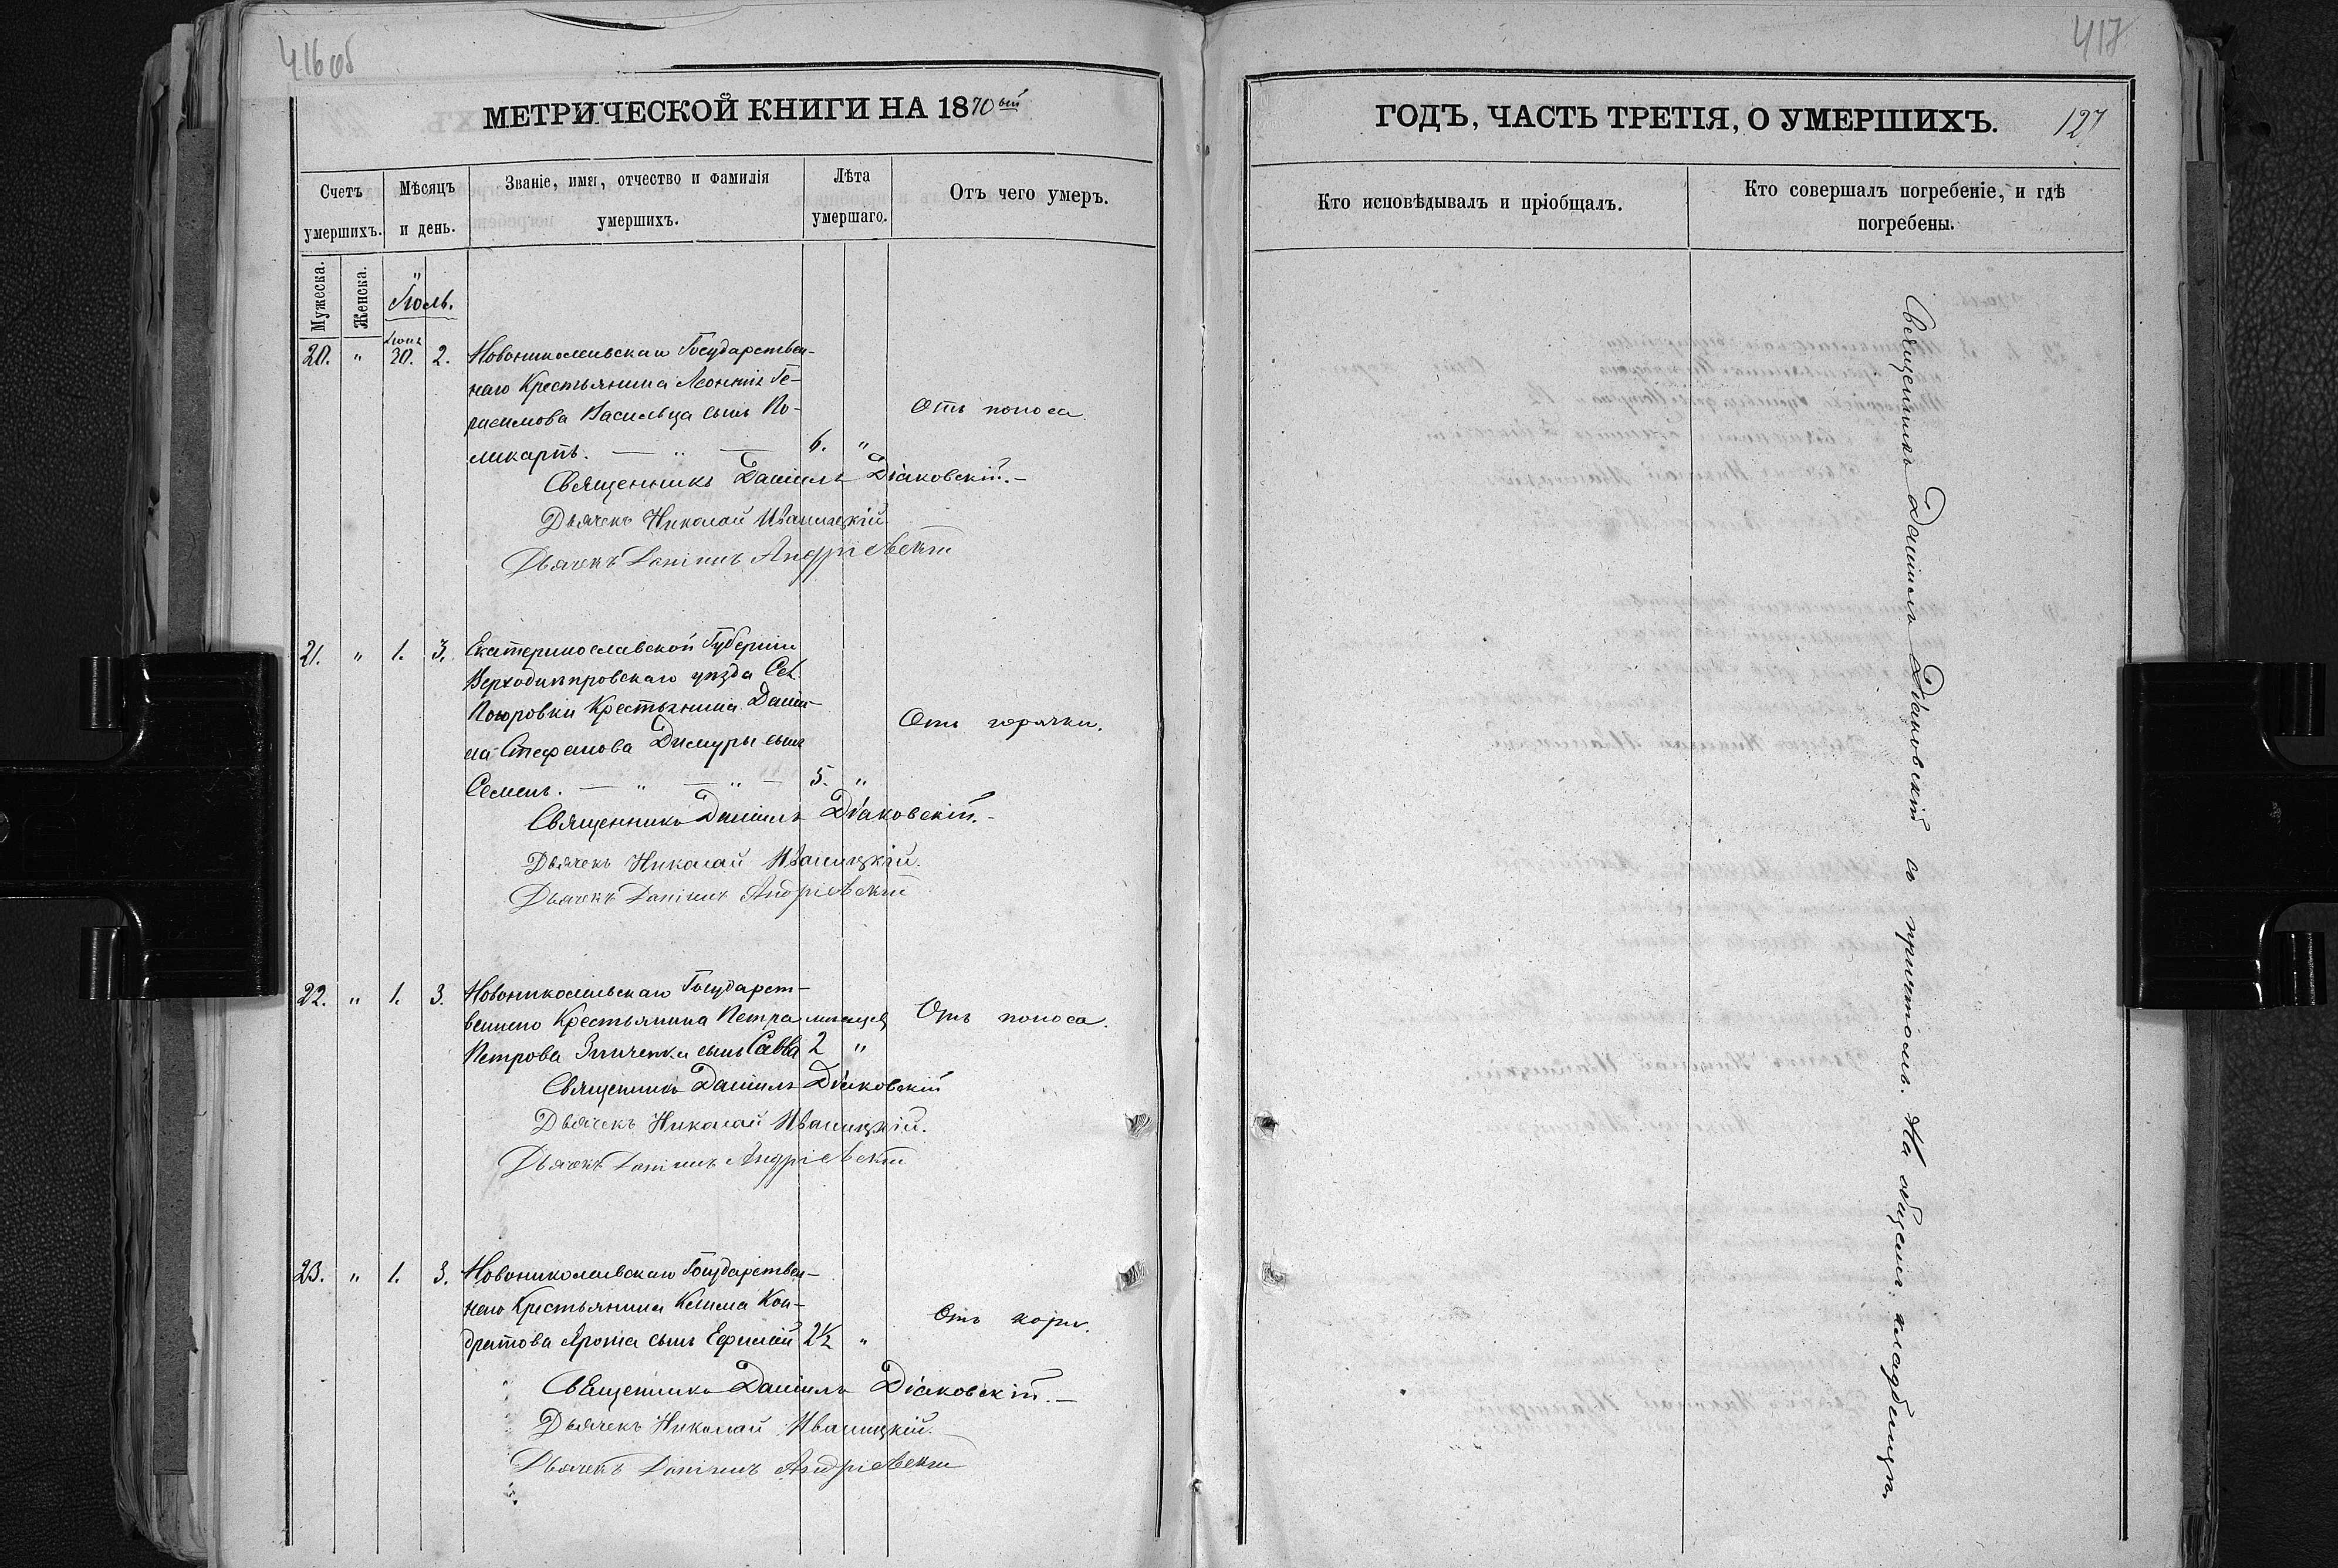 416 об
МЕТРИЧЕСКОЙ КНИГИ НА 1870ый
Счетъ умершихъ.
Мѣсяцъ и день.
Званіе, имя, отчество и фамилія умершихъ.
Лѣта умершаго.
Отъ чего умеръ.
Мужеска.
Женска.
Іюль.
Іюнь
20. " 30. 2. Новониколаевскаго Государствен-
наго Крестьянина Леонтія Ге-
расимова Васильца сынъ По- Отъ поноса
ликарпъ. — " — 6. "
Священникъ Даніилъ Діаковскій.-
Дьячекъ Николай Иваницкій.
Дьячекъ Андріевскій
21. " 1. 3. Екатеринославской Губерніи
Верходнѣпровскаго уѣзда Сел.
Крестьянина Дани-
ла Стефанова Димуры сынъ Отъ горячки.
Семенъ. — " — " — 5. "
Священникъ Даніилъ Діаковскій.-
Дьячекъ Николай Иваницкій.
Дьячекъ Андріевскій
22. " 1. 3. Новониколаевскаго Государст-
веннаго Крестьянина Петра мѣсяцевъ Отъ поноса.
Петрова Зинченка сынъ Савва 2 "
Священникъ Даніилъ Діаковскій
Дьячекъ Николай Иваницкій.
Дьячекъ Андріевскій
23. " 1. 3. Новониколаевскаго Государствен-
наго Крестьянина Клима Кон-
дратова сынъ Ефимій 2½ " Отъ кори.
Священникъ Даніилъ Діаковскій.—
Дьячекъ Николай Иваницкій.
Дьячекъ Андріевскій
417
ГОДЪ, ЧАСТЬ ТРЕТІЯ, О УМЕРШИХЪ.
127
Кто исповѣдывалъ и пріобщалъ.
Кто совершалъ погребеніе, и гдѣ
погребены.
Священникъ Даніилъ Діаковскій со причтомъ. На общемъ кладбищѣ.